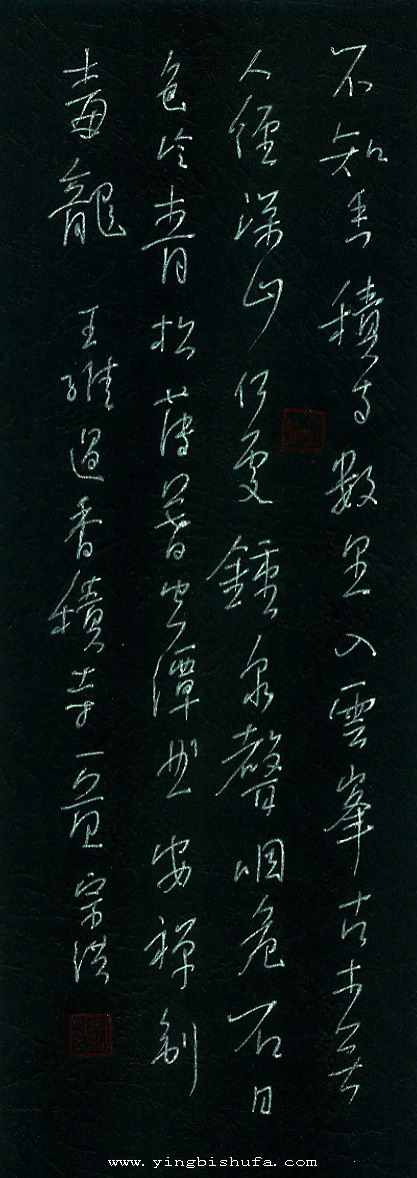 不知香積寺數里入雲峯古木無
人徑深山何處鍾泉聲咽危石日
色冷青松薄暮空潭曲安禪制
毒龍 王維過香積寺一首 宗洪
www.yingbishufa.com